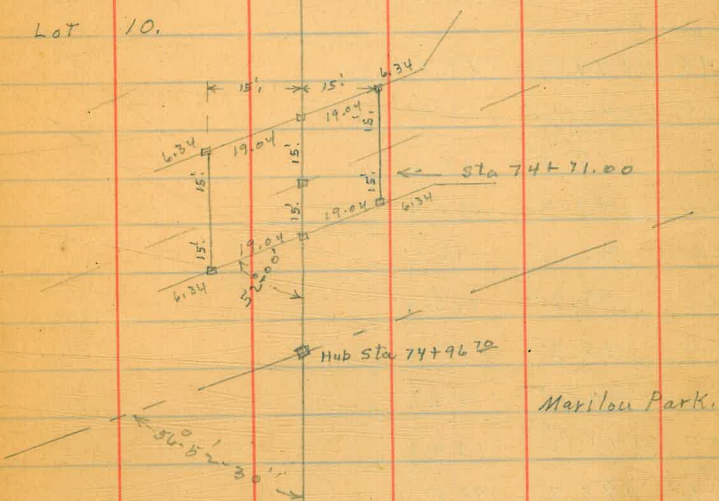 Lot 10.
6.34
15'
15'
19.04
15'
6.34
19.04
15'
15'
15'
Sta 74+71.00
15'
15'
19.04
6.34
19.04
6.34
52°00'
Hub Sta 74+96 70
Marilou Park.
56°-52'-30"